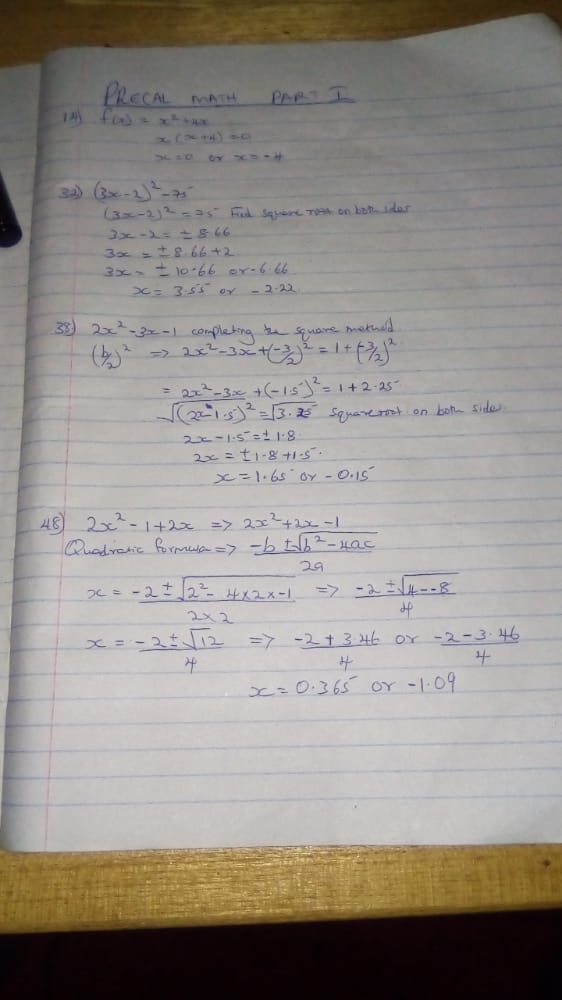 PRECAL MATH PART I
14) f(x) = x² + 4x
x(x+4) = 0
x = 0 or x = -4
32) (3x-2)² - 75
(3x-2)² = 75 Find square root on both sides
3x - 2 = ± 8.66
3x = ± 8.66 + 2
3x = ± 10.66 or -6.66
x = 3.55 or -2.22
38) 2x² - 3x - 1 completing the square method
(b/2)² => 2x² - 3x + (-3/2)² = 1 + (-3/2)²
= 2x² - 3x + (-1.5)² = 1 + 2.25
√(2x-1.5)² = √3.25 square root on both sides
2x - 1.5 = ± 1.8
2x = ± 1.8 + 1.5
x = 1.65 or -0.15
48) 2x² - 1 + 2x => 2x² + 2x - 1
Quadratic formula => -b ± √b² - 4ac / 2a
x = -2 ± √2² - 4x2x-1 / 2x2 => -2 ± √4--8 / 4
x = -2 ± √12 / 4 => -2 + 3.46 / 4 or -2 - 3.46 / 4
x = 0.365 or -1.09